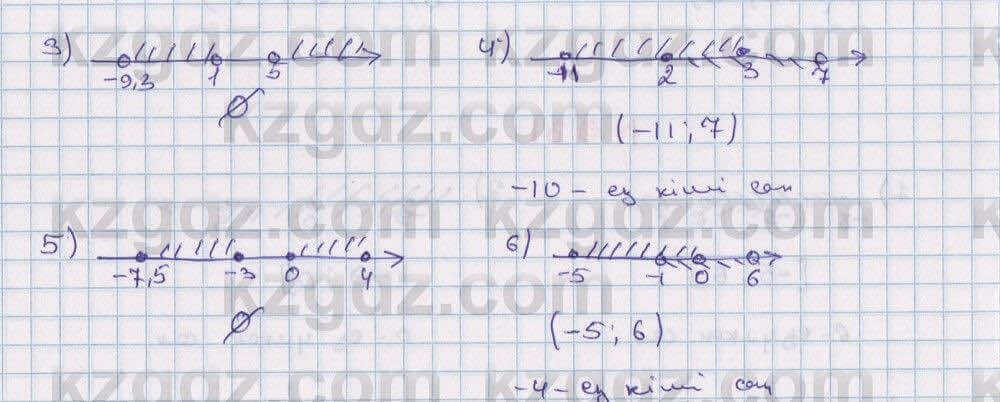 3) -9,3 1 5
∅
4) -11 2 3 7
(-11; 7)
-10 - ең кіші сан
5) -7,5 -3 0 4
∅
6) -5 -1 0 6
(-5; 6)
-4 - ең кіші сан
kzgdz.com